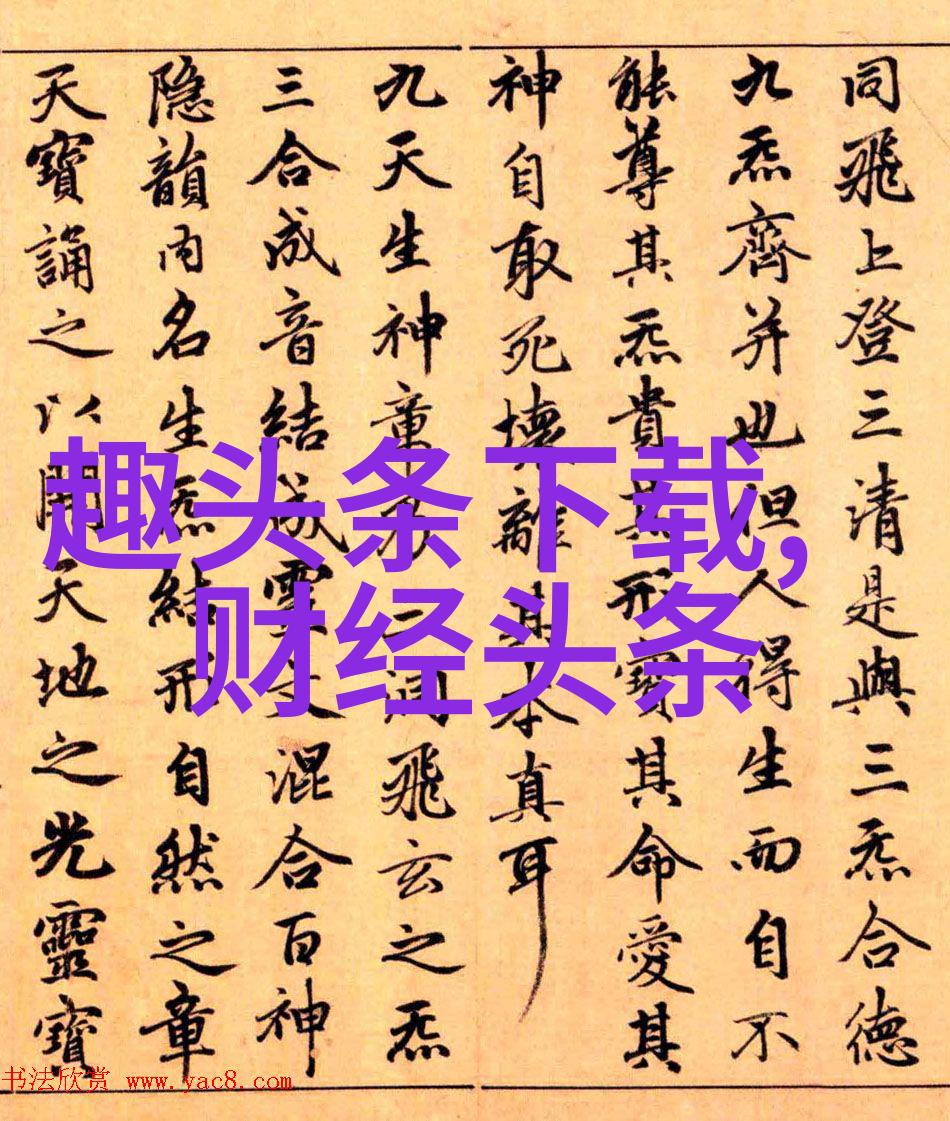 同飛上登三清是與三炁合德
九炁齊并也但人得生而自不
能尊其炁貴其形寶其命愛其
神自取死壞離其本真耳
九天生神章乃三洞飛玄之炁
三合成音結成靈文混合百神
隐韻内名生炁結形自然之章
天寶誦之以開天地之光靈寶
趣头条下载,
财经头条
书法欣赏 www.yac8.com